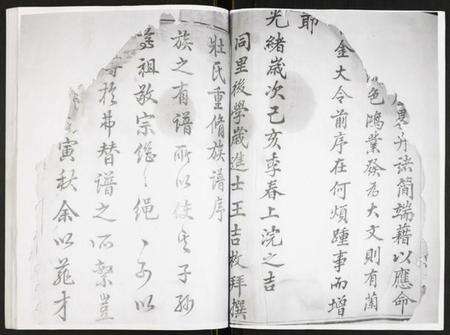 弁诸簡端藉以應命
色鴻業發為大文則有蘭
金大令前序在何煩踵事而增
耶
光緒歲次己亥季春上浣之吉
同里後學歲進士王吉教拜撰
壯氏重脩族譜序
族之有譜所以使其子孫
尊祖敬宗繼繼繩繩勿以
於弗替譜之所繫豈
寅秋余以菲才